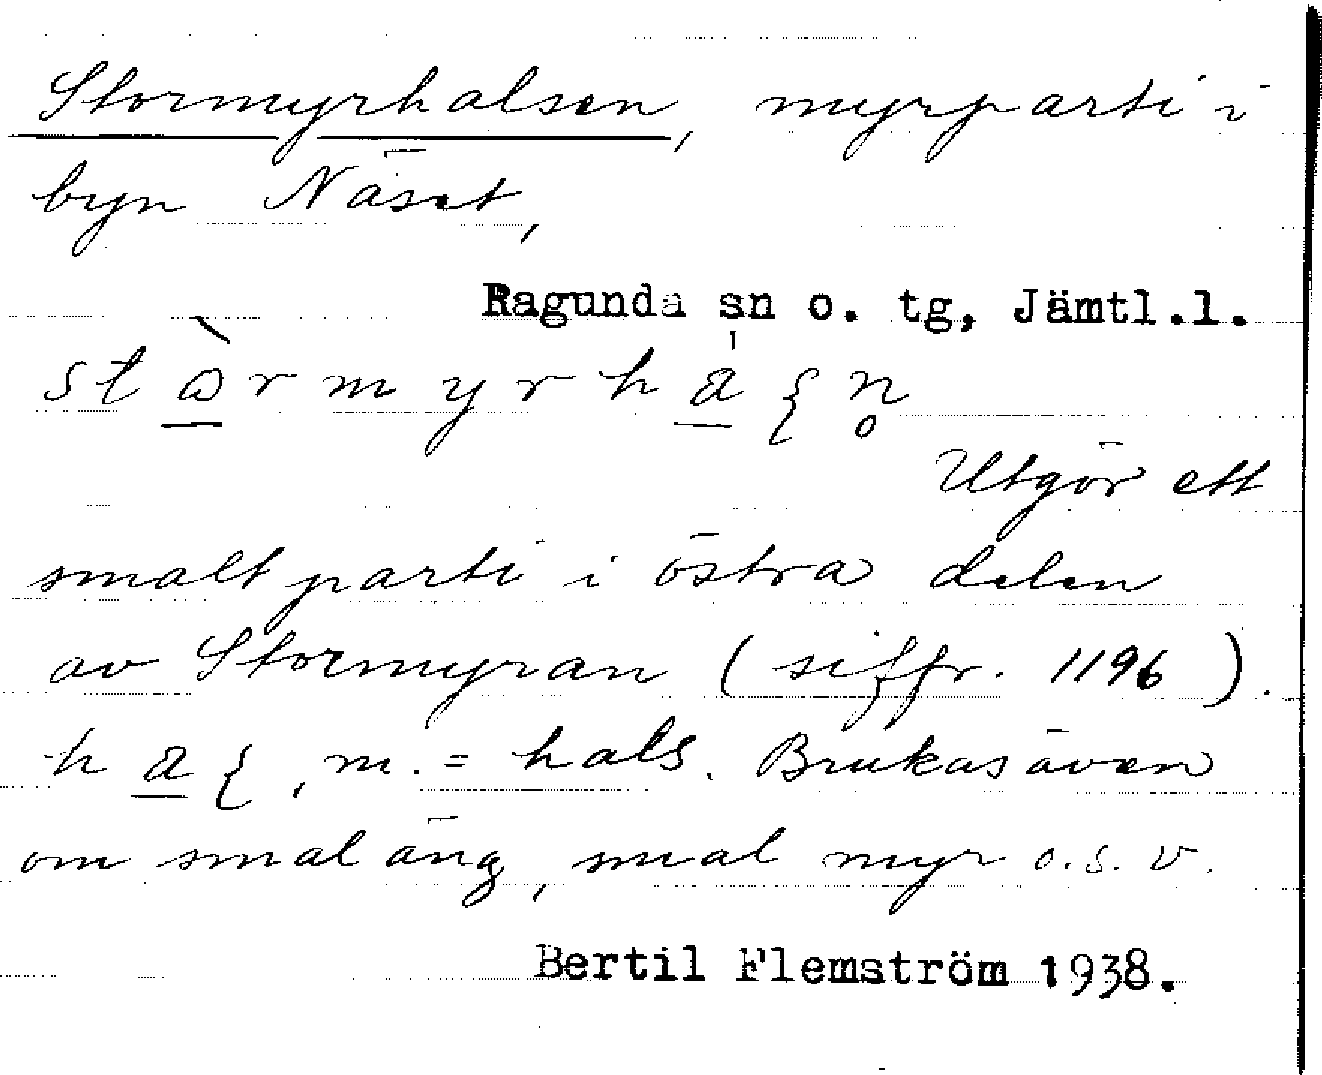 Stormyrhalsen, myrparti i
byn Näset,
Ragunda sn o. tg, Jämtl.l.
Utgör ett
smalt parti i östra delen
av Stormyran (siffr. 1196).
m. = hals. Brukas även
om smal äng, smal myr o.s.v.
Bertil Flemström 1938.